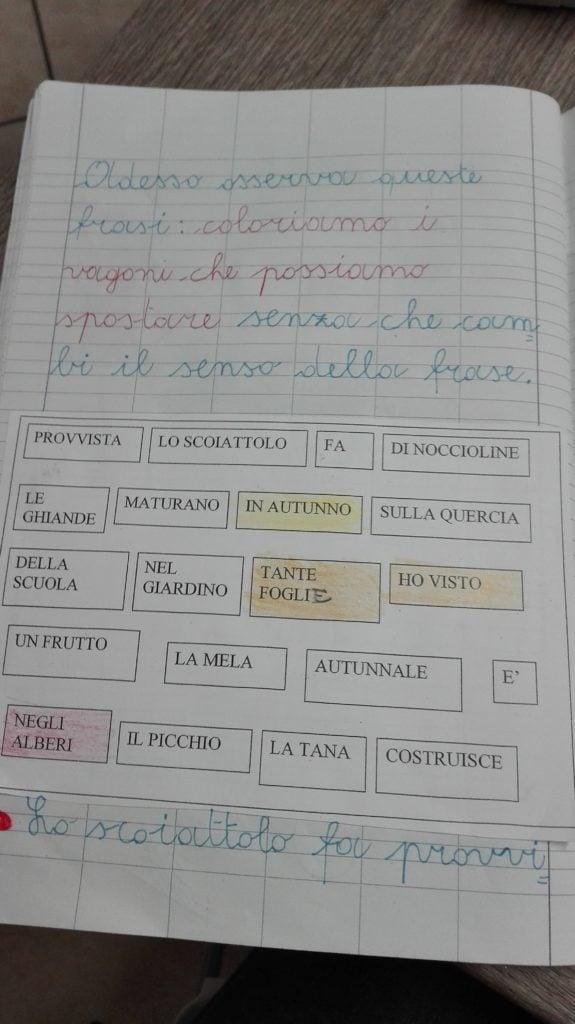 Adesso osserva queste
frasi: coloriamo i
vagoni che possiamo
spostare senza che cam
bi il senso della frase.
PROVVISTA LO SCOIATTOLO FA DI NOCCIOLINE
LE GHIANDE MATURANO IN AUTUNNO SULLA QUERCIA
DELLA SCUOLA NEL GIARDINO TANTE FOGLIE HO VISTO
UN FRUTTO LA MELA AUTUNNALE E'
NEGLI ALBERI IL PICCHIO LA TANA COSTRUISCE
Lo scoiattolo fa provvi